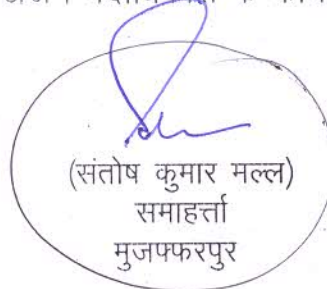 (संतोष कुमार मल्ल)
समाहर्त्ता
मुजफ्फरपुर